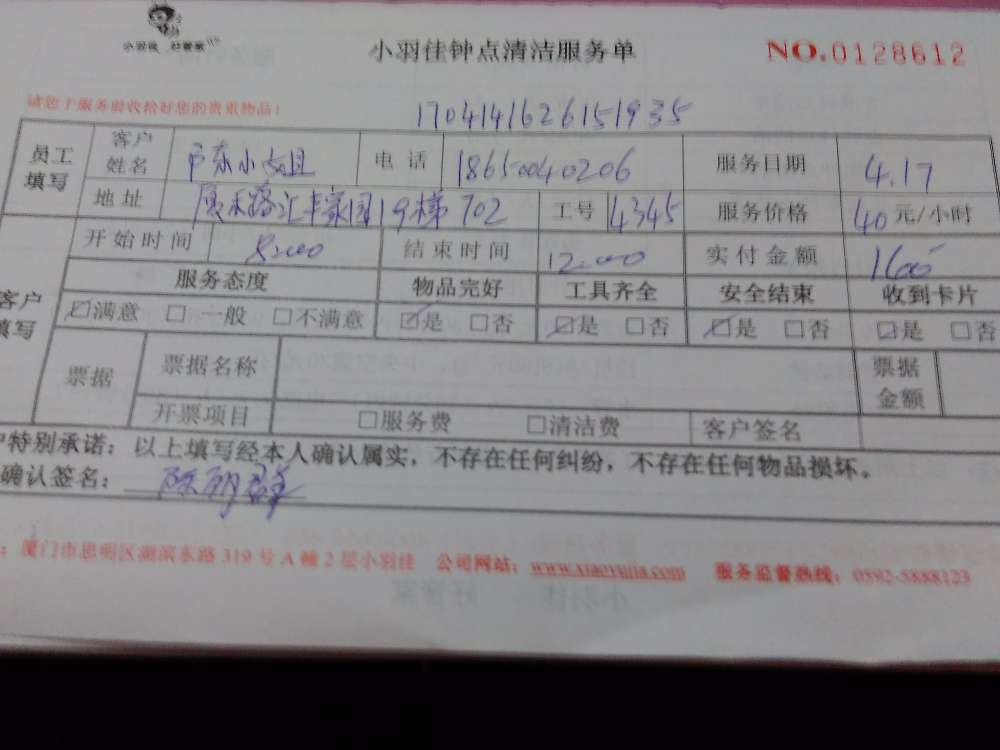 小羽佳 好管家
小羽佳钟点清洁服务单
NO.0128612
请您于服务前收拾好您的贵重物品!
1704141626151935
员工填写 客户姓名 小姐 电话 18650040206 服务日期 4.17
地址 厦禾路汇丰家园19梯702 工号 4345 服务价格 40元/小时
客户填写 开始时间 8:00 结束时间 12:00 实付金额 160
服务态度 物品完好 工具齐全 安全结束 收到卡片
☑满意 □一般 □不满意 ☑是 □否 ☑是 □否 ☑是 □否 ☑是 □否
票据 票据名称 票据金额
开票项目 □服务费 □清洁费 客户签名
户特别承诺:以上填写经本人确认属实,不存在任何纠纷,不存在任何物品损坏。
确认签名:
:厦门市思明区湖滨东路319号A幢2层小羽佳 公司网站:www.xiaoyujia.com 服务监督热线:0592-5888123